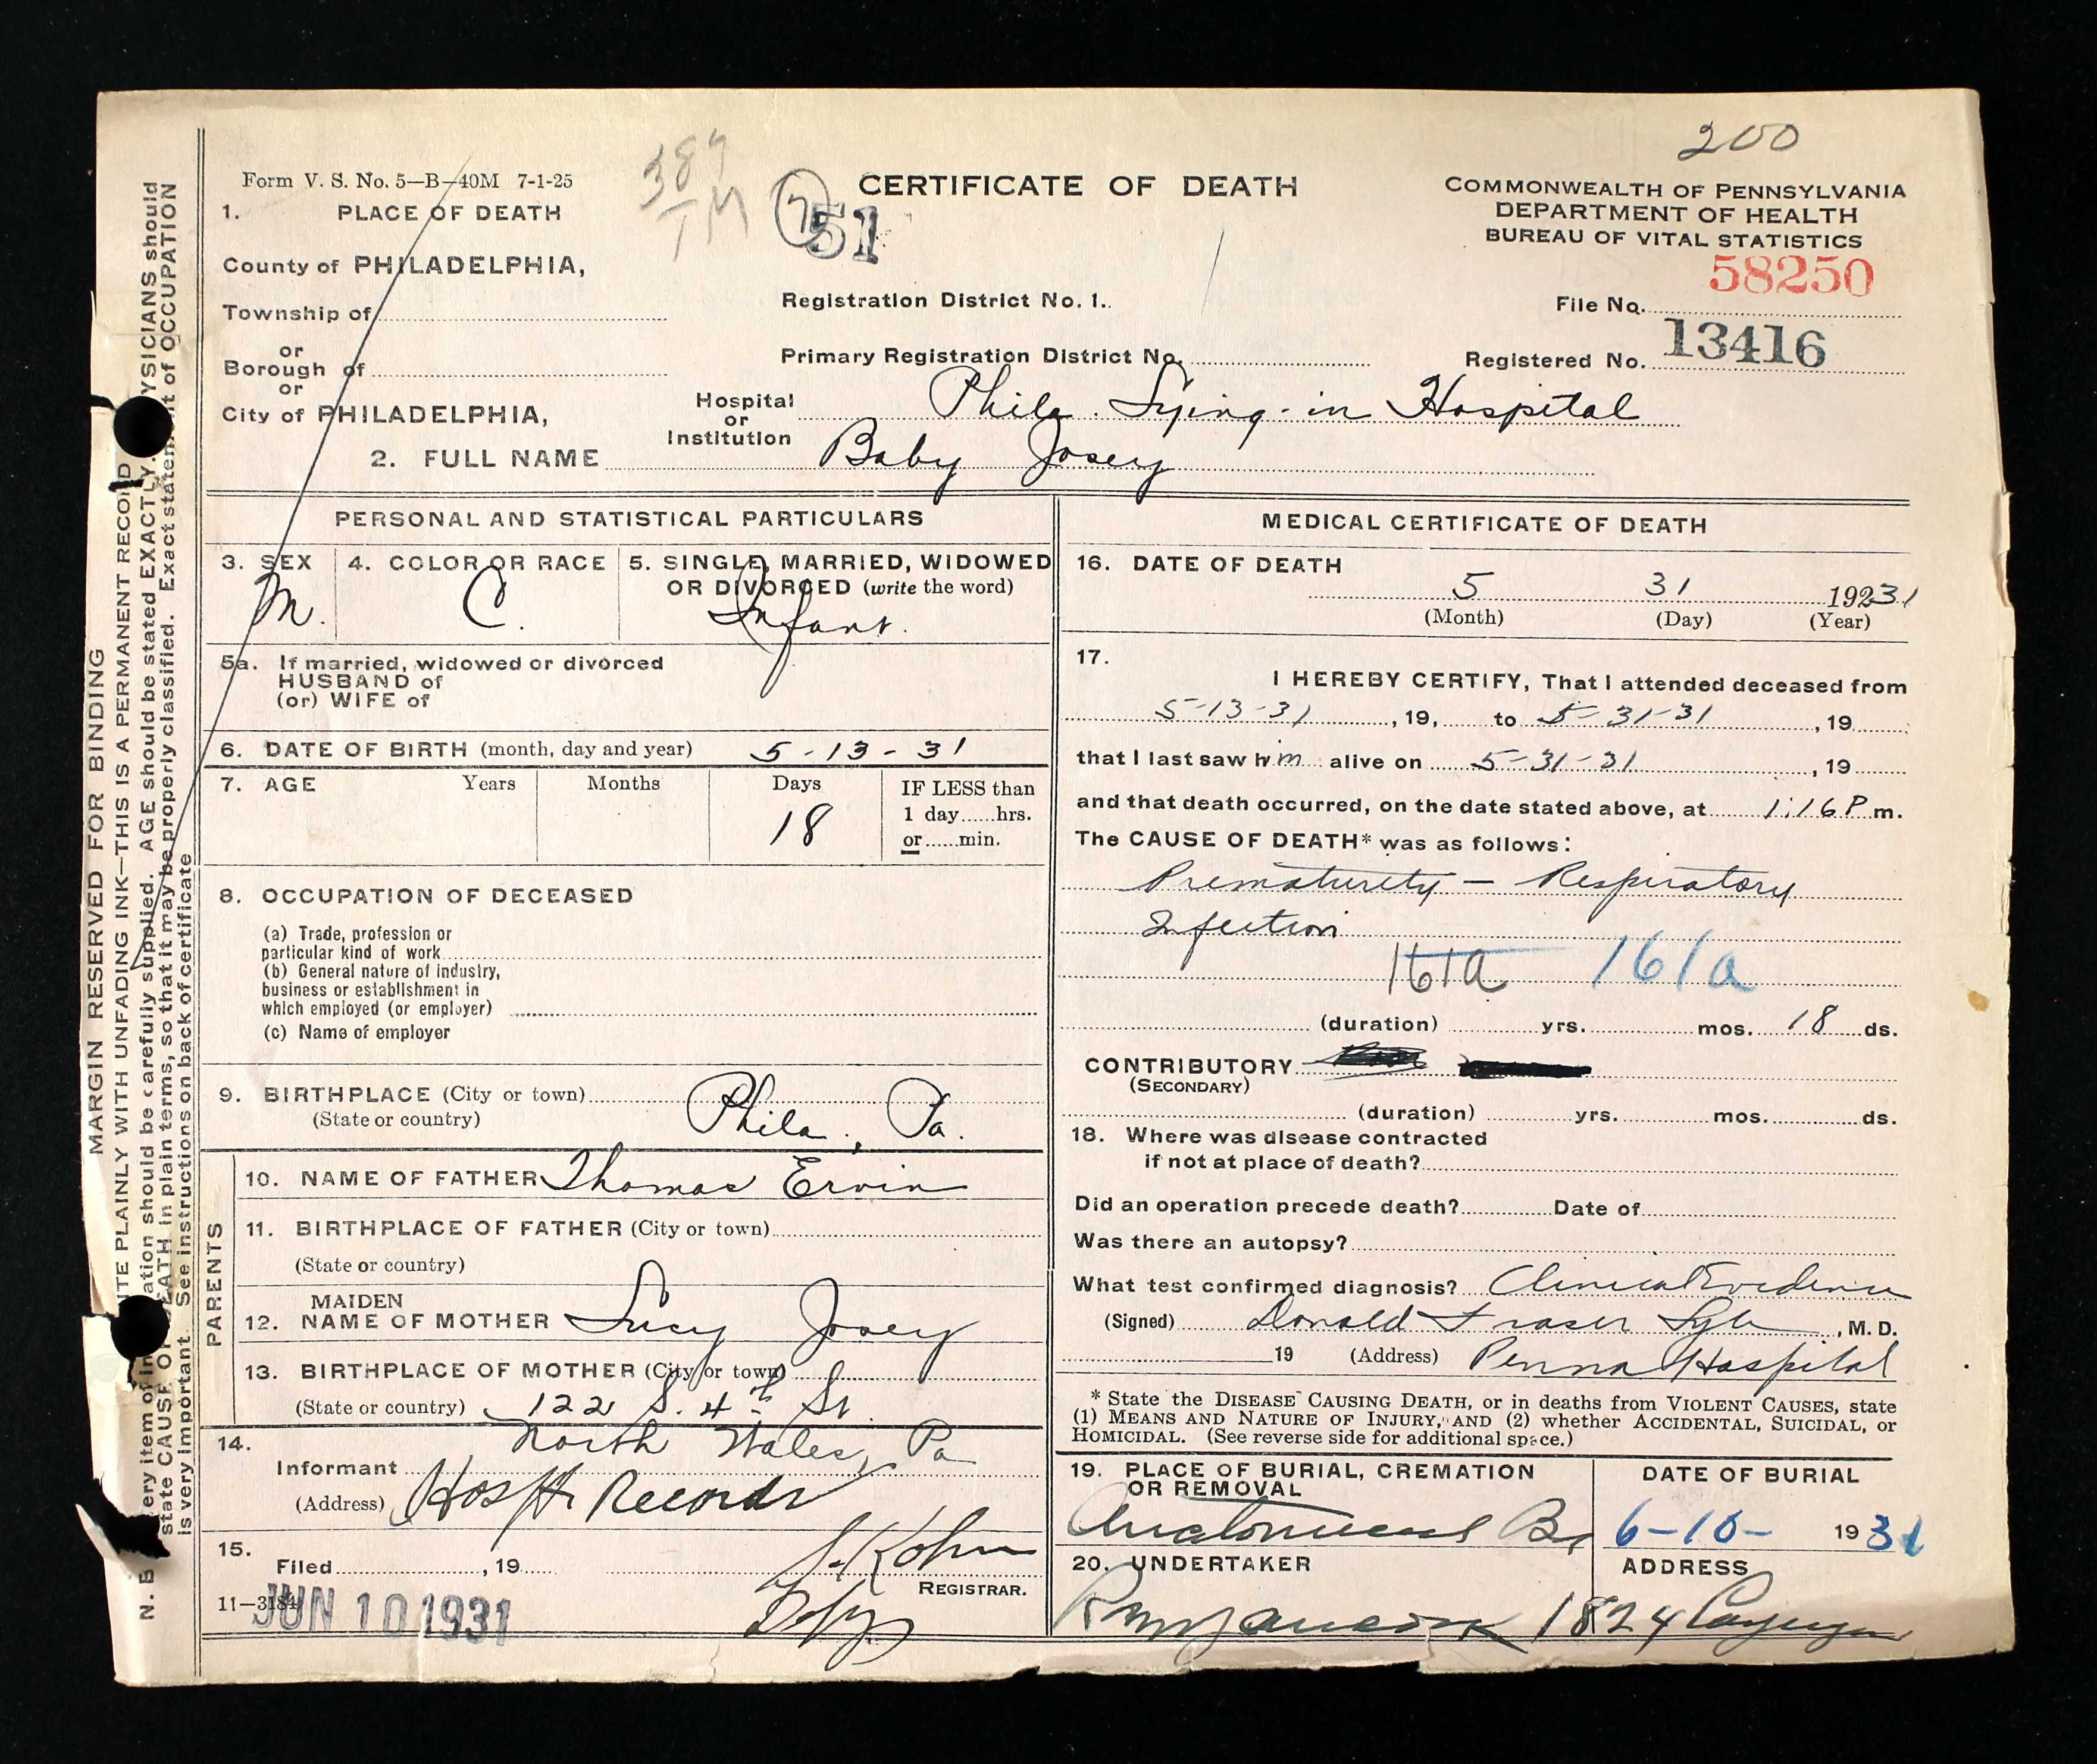 200
389
1 M
Form V. S. No. 5—B—40M 7-1-25
CERTIFICATE OF DEATH
COMMONWEALTH OF PENNSYLVANIA
DEPARTMENT OF HEALTH
BUREAU OF VITAL STATISTICS
7
51
1. PLACE OF DEATH
County of PHILADELPHIA,
58250
File No.
Township of
Registration District No. 1.
13416
or
Borough of
Primary Registration District No.
Registered No.
or
City of PHILADELPHIA,
Hospital or Institution Phila. Lying-in Hospital
2. FULL NAME Baby Josey
PERSONAL AND STATISTICAL PARTICULARS
3. SEX
M.
4. COLOR OR RACE
C.
5. SINGLE, MARRIED, WIDOWED
OR DIVORCED (write the word)
Infant.
5a. If married, widowed or divorced
HUSBAND of
(or) WIFE of
6. DATE OF BIRTH (month, day and year) 5-13-31
7. AGE Years Months Days IF LESS than
18
1 day......hrs.
or......min.
8. OCCUPATION OF DECEASED
(a) Trade, profession or
particular kind of work
(b) General nature of industry,
business or establishment in
which employed (or employer)
(c) Name of employer
9. BIRTHPLACE (City or town)
(State or country) Phila., Pa.
PARENTS
10. NAME OF FATHER Thomas Ervin
11. BIRTHPLACE OF FATHER (City or town)
(State or country)
MAIDEN
12. NAME OF MOTHER Lucy Josey
13. BIRTHPLACE OF MOTHER (City or town)
(State or country) 122 S. 4th St.
14. North Wales, Pa
Informant
(Address) Hosp. Records
15.
Filed , 19
J. Kohn
REGISTRAR.
11—3184
JUN 10 1931
MEDICAL CERTIFICATE OF DEATH
16. DATE OF DEATH
5 31 19231
(Month) (Day) (Year)
17.
I HEREBY CERTIFY, That I attended deceased from
5-13-31, 19, to 5-31-31, 19
that I last saw him alive on 5-31-31, 19
and that death occurred, on the date stated above, at 1:16 P m.
The CAUSE OF DEATH* was as follows:
Prematurity — Respiratory
Infection
161a 161a
(duration) yrs. mos. 18 ds.
CONTRIBUTORY
(SECONDARY)
(duration) yrs. mos. ds.
18. Where was disease contracted
if not at place of death?
Did an operation precede death? Date of
Was there an autopsy?
What test confirmed diagnosis? Clinical Evidence
(Signed) Donald Fraser Lyle, M. D.
19 (Address) Penna Hospital
* State the DISEASE CAUSING DEATH, or in deaths from VIOLENT CAUSES, state
(1) MEANS AND NATURE OF INJURY, AND (2) whether ACCIDENTAL, SUICIDAL, or
HOMICIDAL. (See reverse side for additional space.)
19. PLACE OF BURIAL, CREMATION
OR REMOVAL
Anatomical Bd
DATE OF BURIAL
6-10- 1931
20. UNDERTAKER
ADDRESS
1824 Cayuga
MARGIN RESERVED FOR BINDING
ITE PLAINLY WITH UNFADING INK—THIS IS A PERMANENT RECORD
N. B. ery item of in ation should be carefully supplied. AGE should be stated EXACTLY. YSICIANS should
state CAUSE OF EATH in plain terms, so that it may be properly classified. Exact statement of OCCUPATION
is very important. See instructions on back of certificate